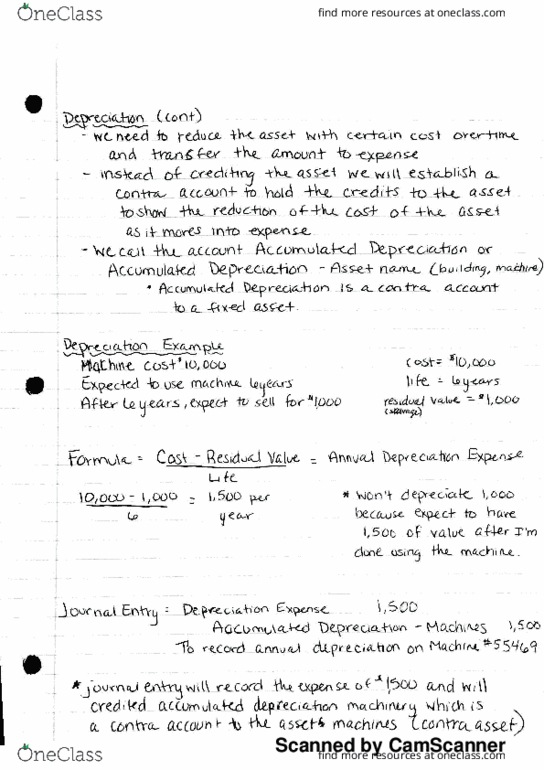 OneClass
find more resources at oneclass.com
Depreciation (cont)
- we need to reduce the asset with certain cost overtime
and transfer the amount to expense
- instead of crediting the asset we will establish a
contra account to hold the credits to the asset
to show the reduction of the cost of the asset
as it moves into expense
- We call the account Accumulated Depreciation or
Accumulated Depreciation - Asset name (building, machine)
• Accumulated Depreciation is a contra account
to a fixed asset.
Depreciation Example
Machine cost $10,000 cost= $10,000
Expected to use machine 6years life = 6years
After 6 years, expect to sell for $1000 residual value = $1,000
(salvage)
Formula = Cost - Residual Value = Annual Depreciation Expense
Life
10,000 - 1,000 = 1,500 per * won't depreciate 1,000
6 year because expect to have
1,500 of value after I'm
done using the machine.
Journal Entry = Depreciation Expense 1,500
Accumulated Depreciation - Machines 1,500
To record annual depreciation on Machine #55469
* journal entry will record the expense of $1500 and will
credited accumulated depreciation machinery which is
a contra account to the assets machines (contra asset)
Scanned by CamScanner
OneClass
find more resources at oneclass.com